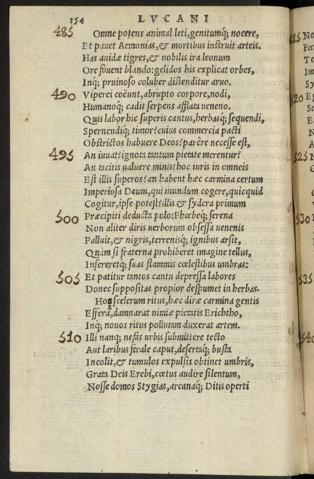 154 LVCANI
485 Omne potens animal leti, genitumq; nocere,
Et pauet Aemonias, & mortibus instruit arteis.
Has auidæ tigres, & nobilis ira leonum
Ore fouent blando: gelidos his explicat orbes,
Inq; pruinoso coluber distenditur aruo.
490 Viperei coëunt, abrupto corpore, nodi,
Humanoq; cadit serpens afflata ueneno.
Quis labor hic superis cantus, herbasq; sequendi,
Spernendiq; timor? cuius commercia pacti
Obstrictos habuere Deos? parêre necesse est,
495 An iuuat? ignota tantum pietate merentur?
An tacitis ualuere minis? hoc iuris in omneis
Est illis superos? an habent hæc carmina certum
Imperiosa Deum, qui mundum cogere, quicquid
Cogitur, ipse potest? illis & sydera primum
500 Præcipiti deducta polo: Phœbeq; serena
Non aliter diris uerborum obsessa uenenis
Palluit, & nigris, terrenisq; ignibus arsit,
Quàm si fraterna prohiberet imagine tellus,
Insereretq; suas flammis cœlestibus umbras:
505 Et patitur tantos cantu depressa labores
Donec suppositas propior despumet in herbas.
Hos scelerum ritus, hæc diræ carmina gentis
Effera, damnarat nimiæ pietatis Erichtho,
Inq; nouos ritus pollutam duxerat artem.
510 Illi nanq; nefas urbis submittere tecto
Aut laribus ferale caput, desertaq; busta
Incolit, & tumulos expulsis obtinet umbris,
Grata Deis Erebi, cœtus audire silentum,
Nosse domos Stygias, arcanaq; Ditis operti